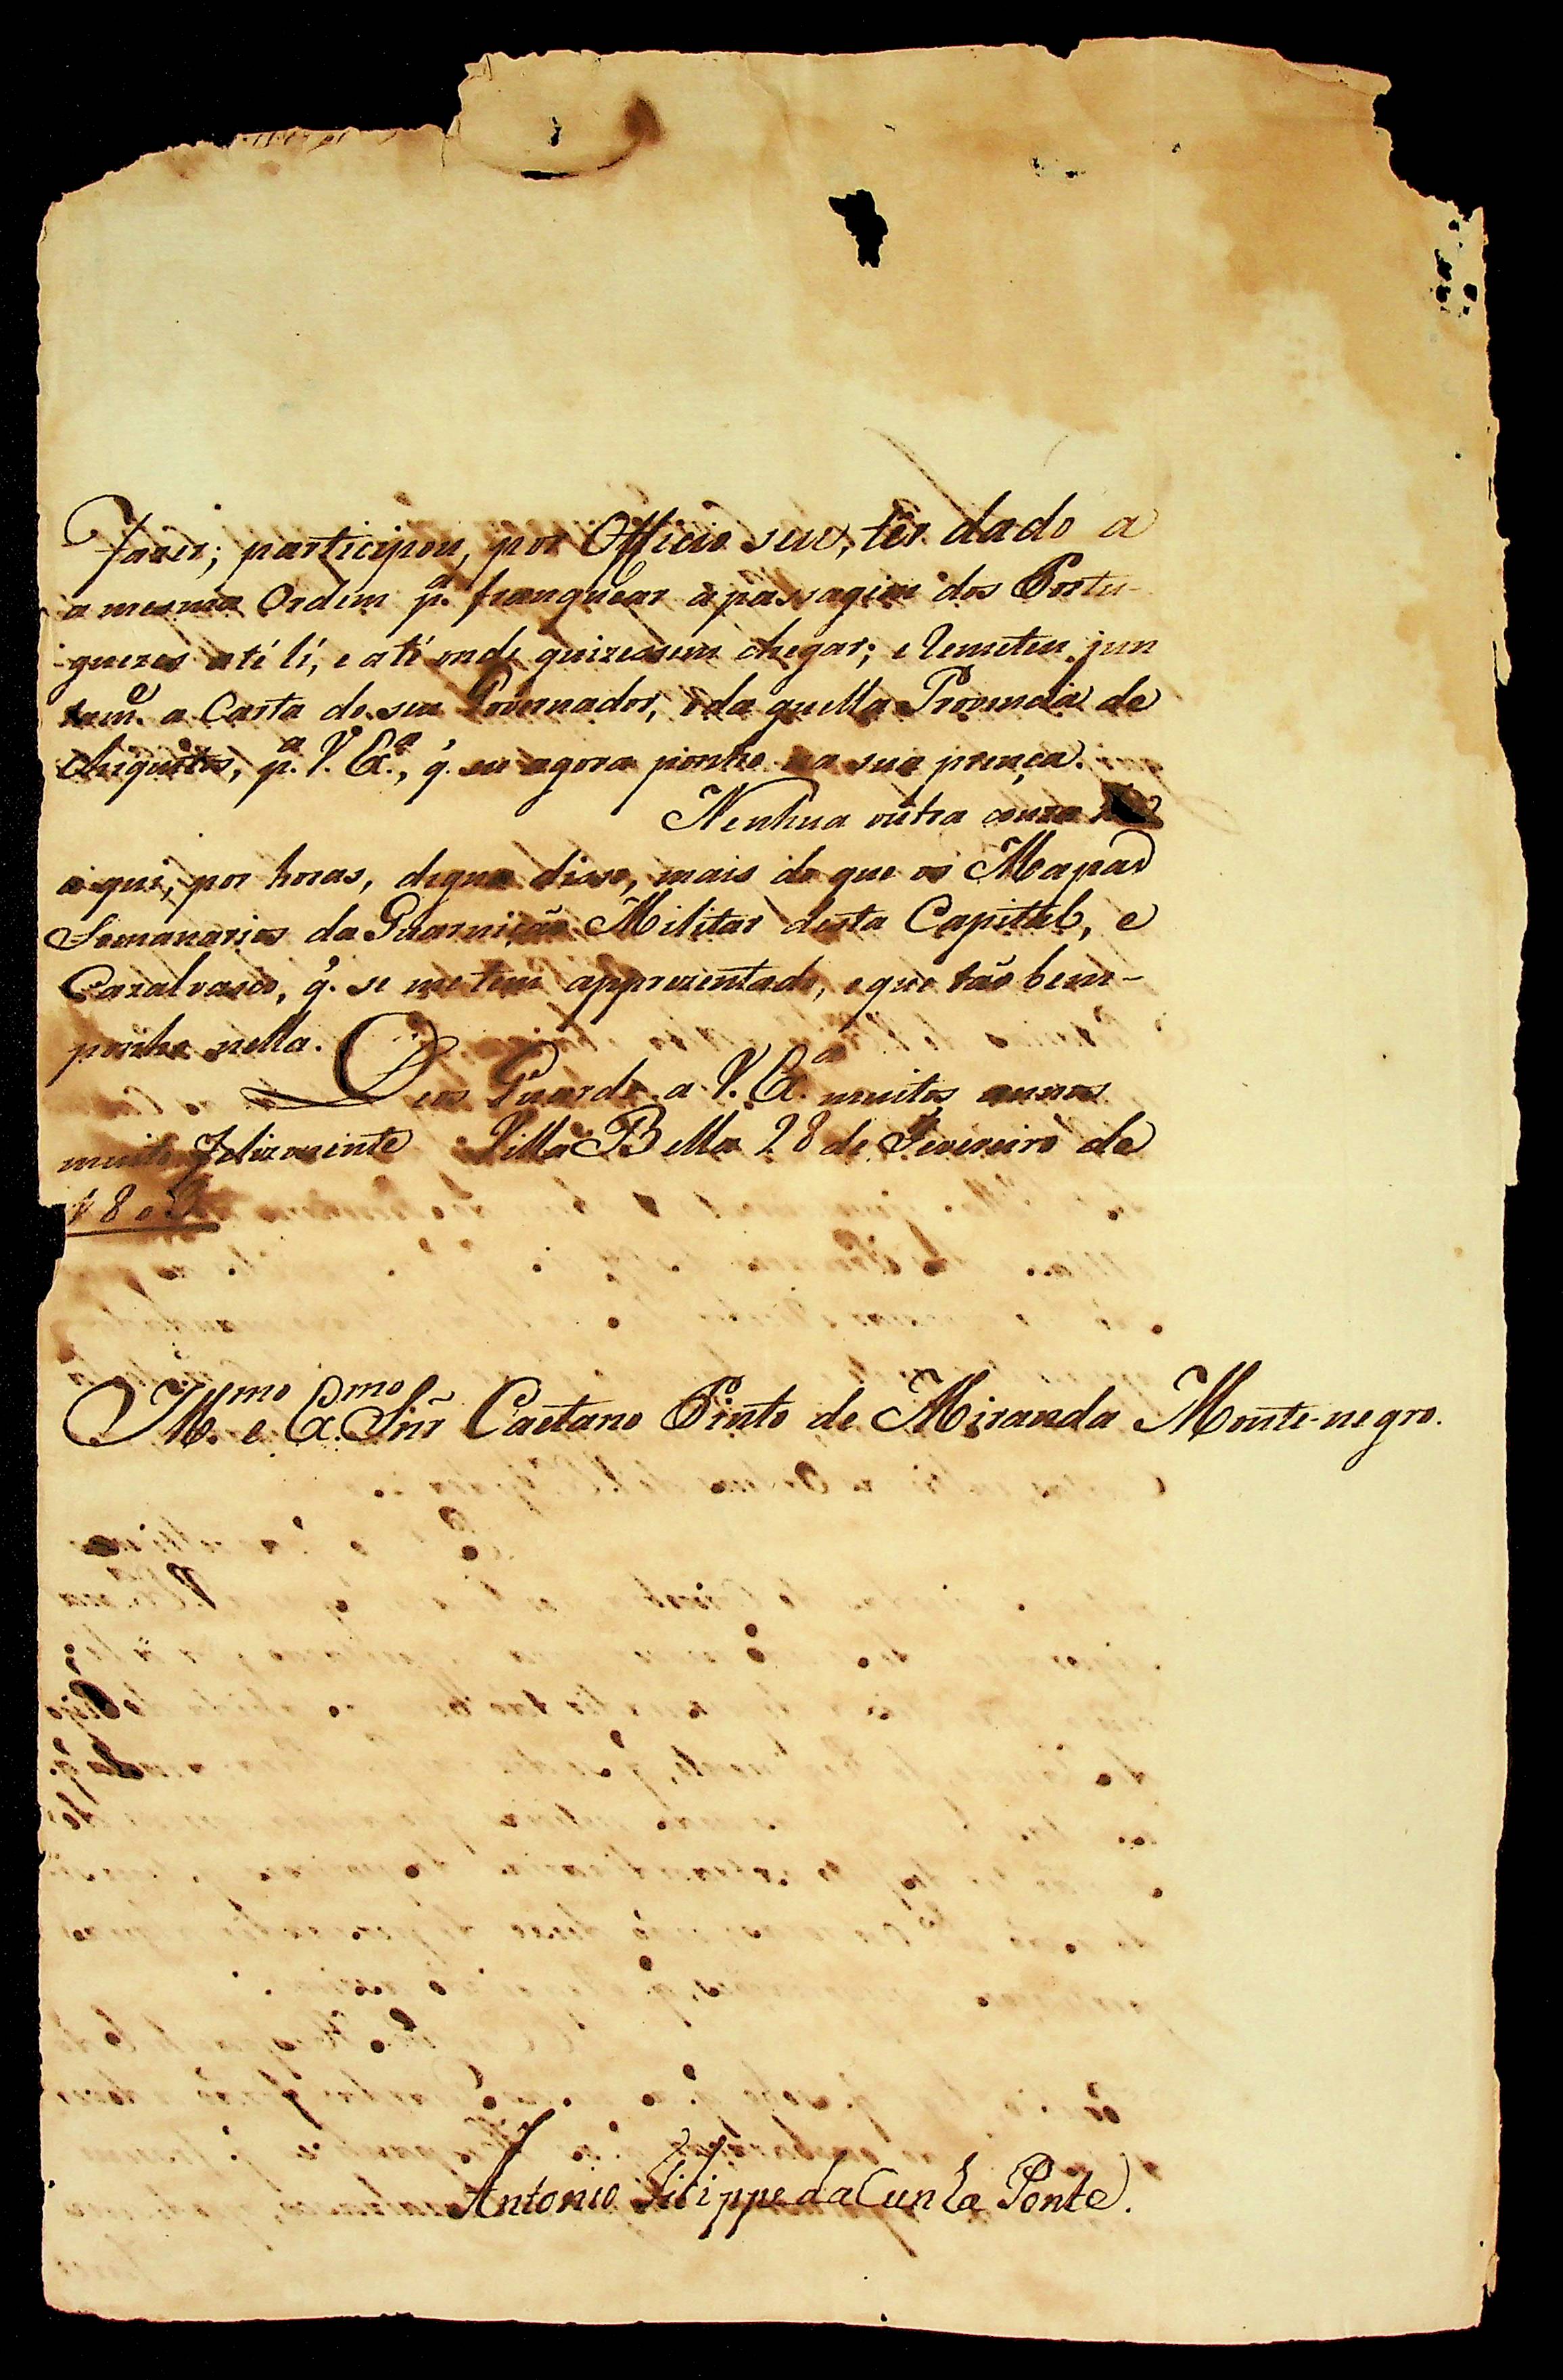 fazer; participou, por Officio seu, têr dado a
a mesma Ordem p.ª franquear a passagem dos Portu-
guezes até li, e até onde quizessem chegar; e remeteu jun
tam.e a Carta do seu Governador, e da quella Provincia de
Chiquitos, p.ª V. Ex.ª, q̃. eu agora ponho na sua prença.
Nenhua outra couza
aqui, por horas, digna disso, mais do que os Mapas
Semanarios da Guarnição Militar desta Capital, e
Cazalvasco, q̃. se me tem apprezentado, e que tão bem-
ponho nella.
Deos Guarde a V. Ex.ª muitos annos
muito felizmente Villa Bella 28 de Fevereiro de
180
Ill.mo e Ex.mo Snr̃ Caetano Pinto de Miranda Monte-negro.
Antonio Filippe da Cunha Ponte.